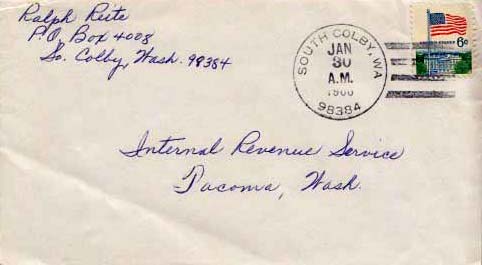 Ralph Reite
P.O. Box 4008
So. Colby, Wash. 98384
SOUTH COLBY, WA
JAN
30
A.M.
98384
UNITED STATES
6¢
Internal Revenue Service
Tacoma, Wash.